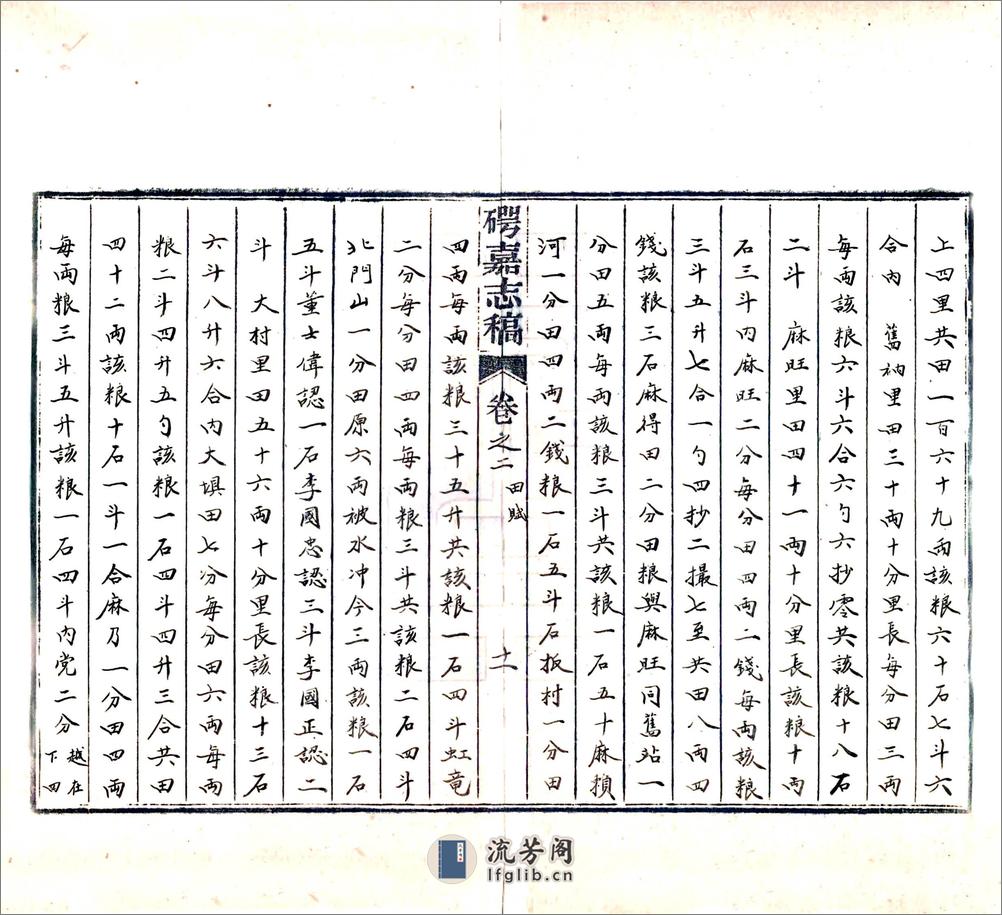 上四里共田一百六十九両該粮六十石七斗六
合內　舊衲里田三十両十分里長每分田三両
每両該粮六斗六合六勺六抄零共該粮十八石
二斗　麻旺里田四十一両十分里長該粮十両
石三斗內麻旺二分每分田四両二錢每両該粮
三斗五升七合一勺四抄二撮七至共田八両四
錢該粮三石麻得田二分田粮與麻旺同舊站一
分田五両每両該粮三斗共該粮一石五十麻損
河一分田四両二錢粮一石五斗石板村一分田
碍嘉志稿 卷之二 田賦 十一
四両每両該粮三十五升共該粮一石四斗虹竜
二分每分田四両每両粮三斗共該粮二石四斗
北門山一分田原六両被水冲今三両該粮一石
五斗董士偉認一石李國忠認三斗李國正認二
斗　大村里田五十六両十分里長該粮十三石
六斗八升六合內大埧田七分每分田六両每両
粮二斗四升五勺該粮一石四斗四升三合共田
四十二両該粮十石一斗一合麻乃一分田四両
每両粮三斗五升該粮一石四斗內党二分越在下四
流芳阁
lfglib.cn